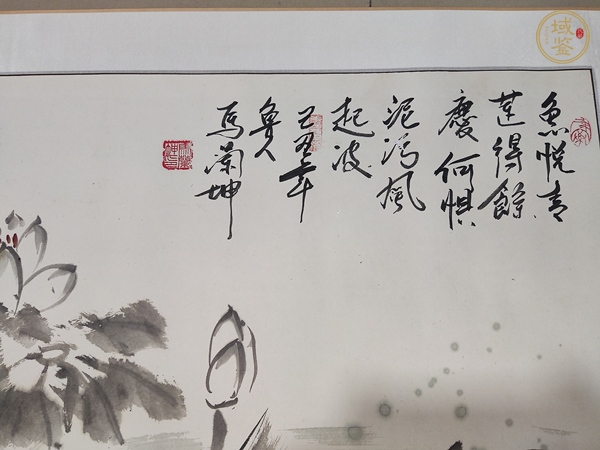 魚悦青
莲得餘
慶何惧
泥污風
起波
己丑年
魯人
馬蘭坤
域鉴